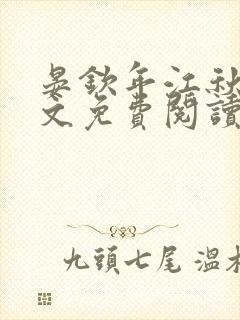 晏欽年江秋
文免費閱讀
九頭七尾 溫木